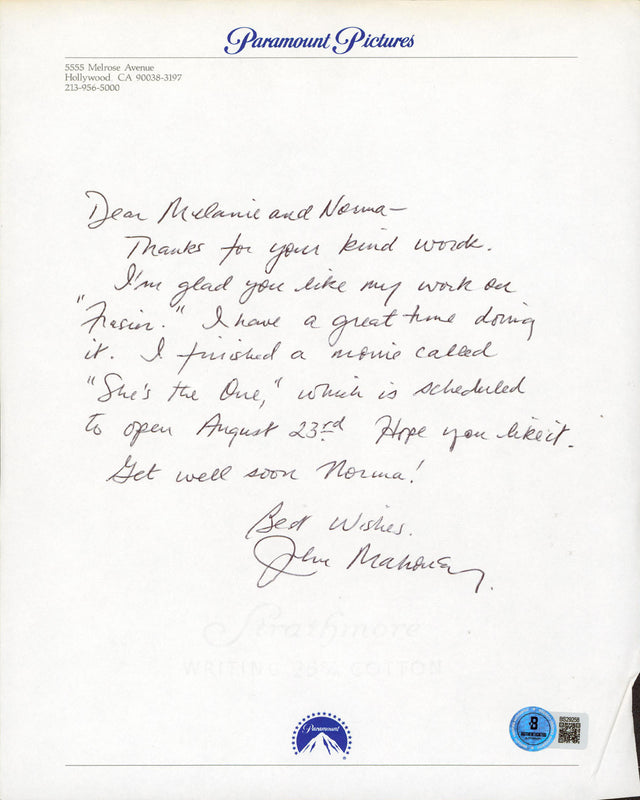 Paramount Pictures
5555 Melrose Avenue
Hollywood, CA 90038-3197
213-956-5000
Dear Melanie and Norma—
Thanks for your kind words.
I'm glad you like my work on
"Frasier." I have a great time doing
it. I finished a movie called
"She's the One," which is scheduled
to open August 23rd Hope you like it.
Get well soon Norma!
Best Wishes.
John Mahoney.
Strathmore
WRITING 25% COTTON
Paramount
B
BS29258